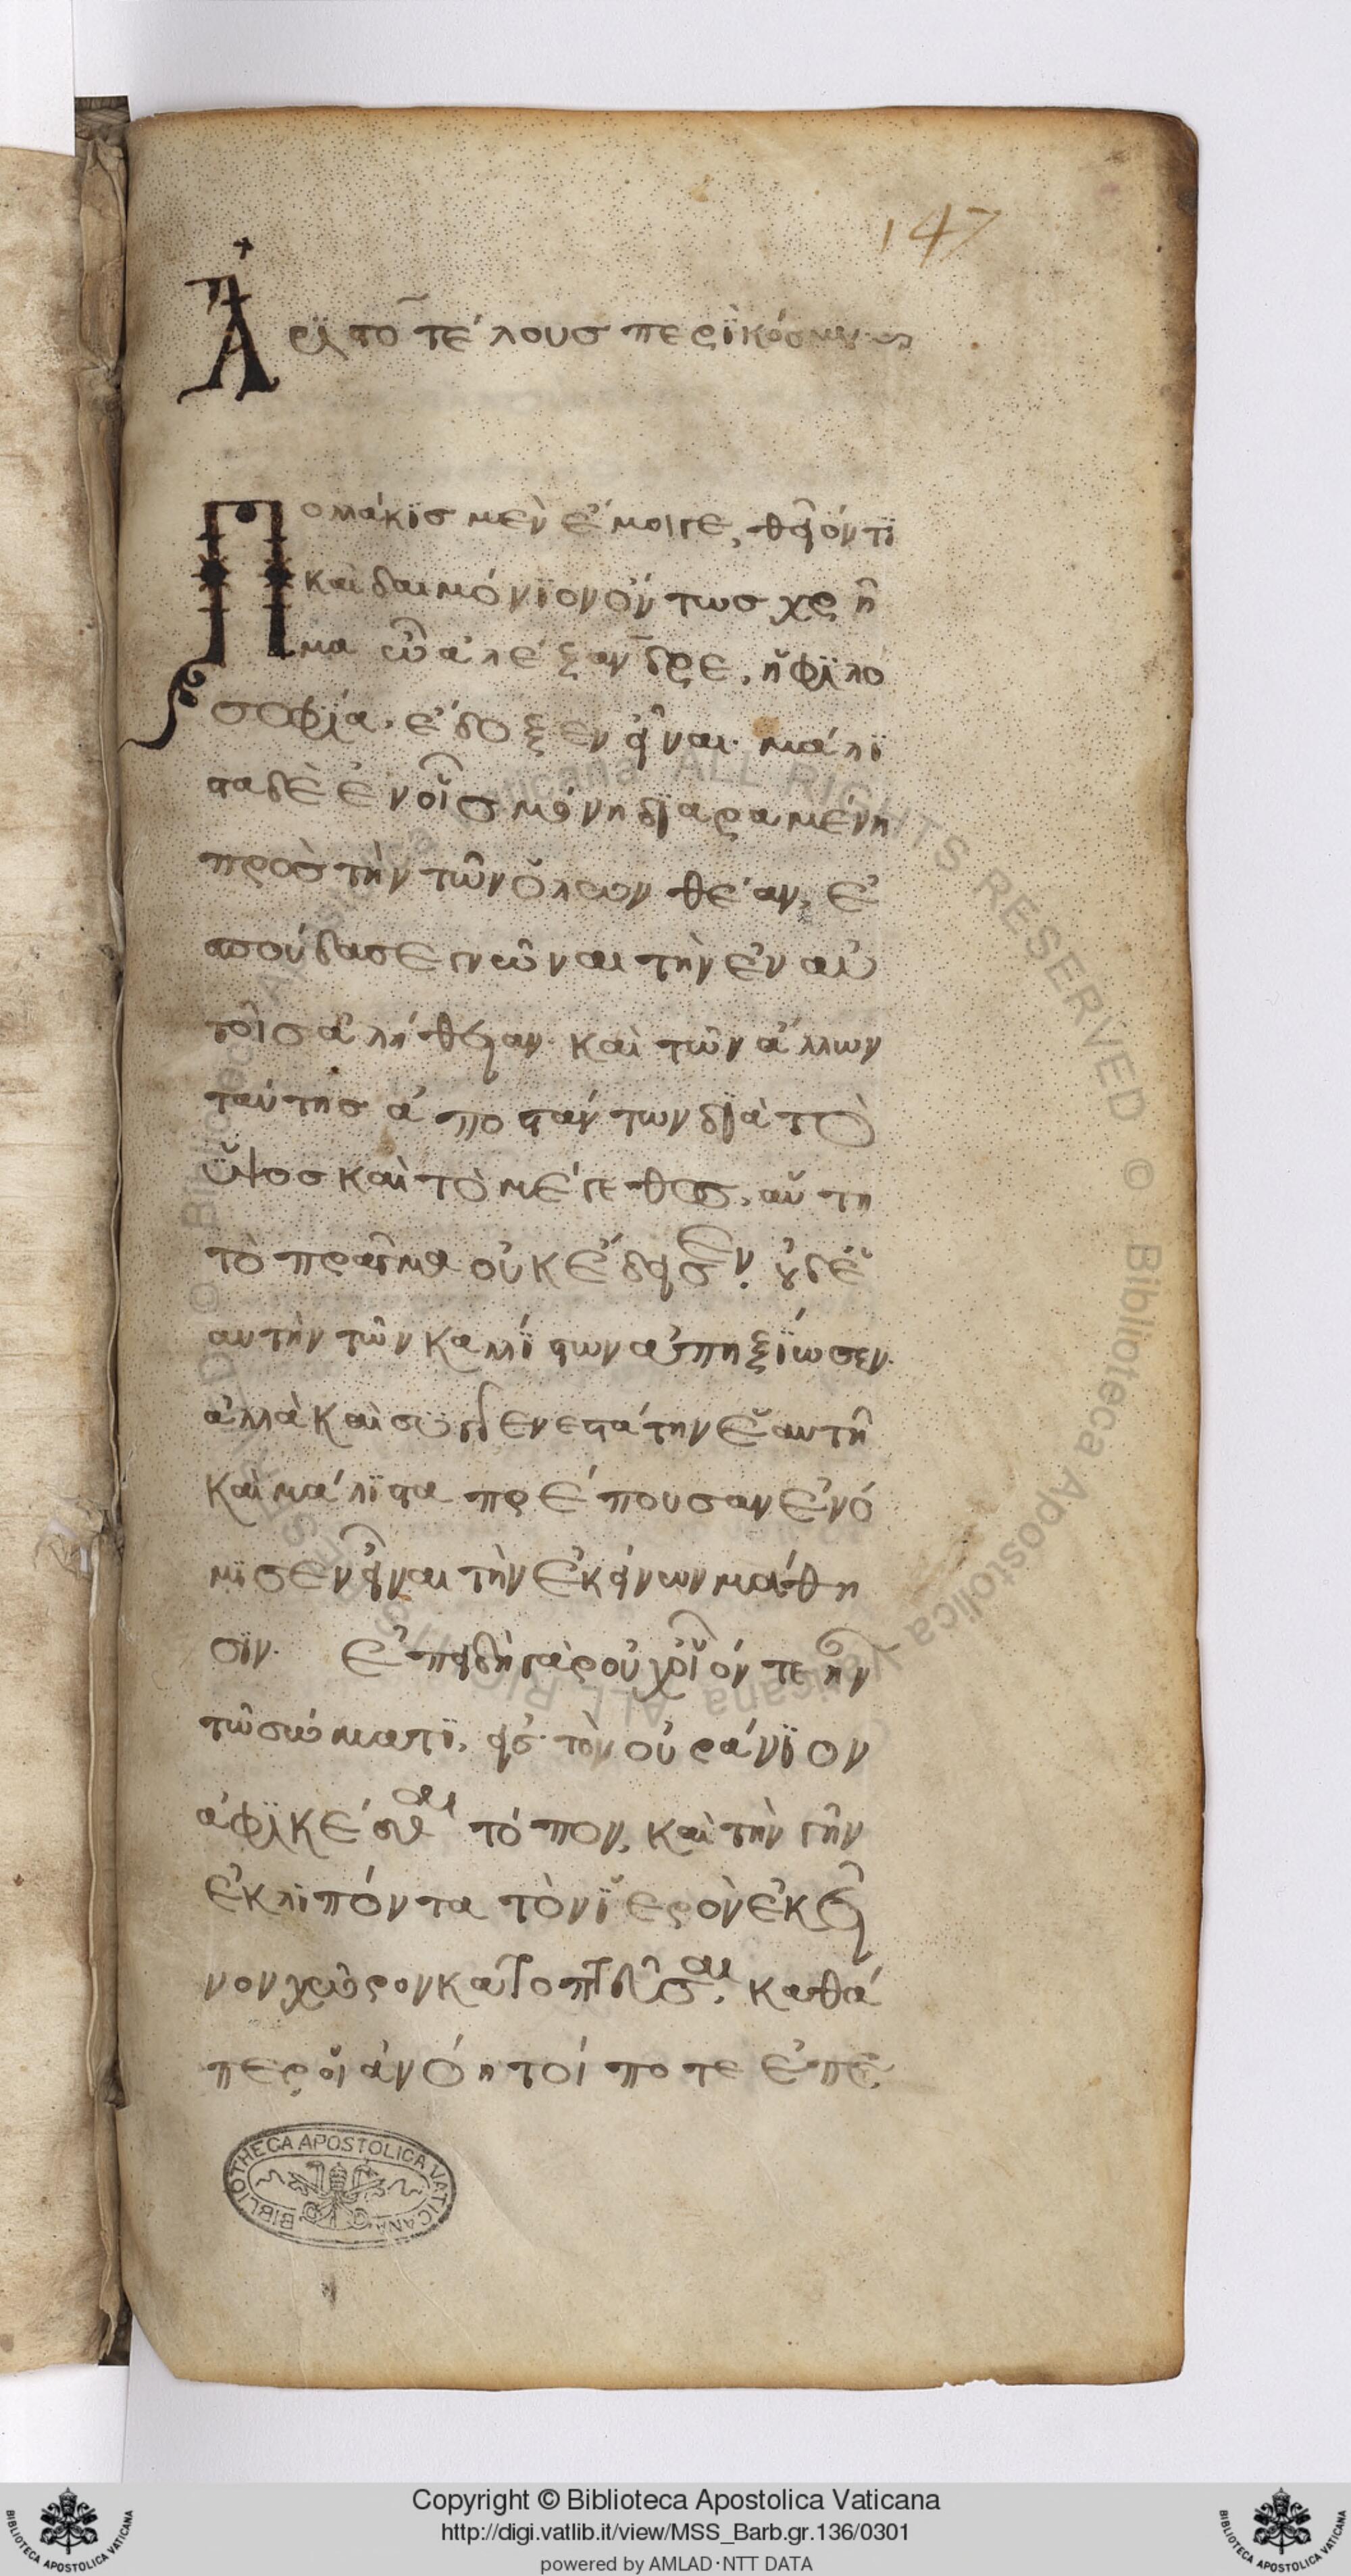 147
Ἀριστοτέλους περὶ κόσμου
Πολλάκις μὲν ἔμοιγε, θεῖόν τι
καὶ δαιμόνιον ὄντως χρῆ
μα ὦ ἀλέξανδρε, ἡ φιλο
σοφία, ἔδοξεν εἶναι· μάλι
στα δὲ ἐν οἷς μόνη διαραμένη
πρὸς τὴν τῶν ὅλων θέαν, ἐ
σπούδασε γνῶναι τὴν ἐν αὐ
τοῖς ἀλήθειαν· καὶ τῶν ἄλλων
ταύτης ἀποστάντων διὰ τὸ
ὕψος καὶ τὸ μέγεθος, αὕτη
τὸ πρᾶγμα οὐκ ἔδεισεν· οὐδ' ἑ
αυτὴν τῶν καλλίστων ἀπηξίωσεν·
ἀλλὰ καὶ συγγενεστάτην ἑαυτῇ
καὶ μάλιστα πρέπουσαν ἐνό
μισεν εἶναι τὴν ἐκείνων μάθη
σιν· Ἐπειδὴ γὰρ οὐχ οἷόν τε ἦν
τῷ σώματι, εἰς τὸν οὐράνιον
ἀφικέσθαι τόπον, καὶ τὴν γῆν
ἐκλιπόντα τὸν ἱερὸν ἐκεῖ
νον χῶρον κατοπτεῦσαι, καθά
περ οἱ ἀνόητοί ποτε ἐπε
BIBLIOTHECA APOSTOLICA VATICANA
© Biblioteca Apostolica Vaticana ALL RIGHTS RESERVED
Copyright © Biblioteca Apostolica Vaticana
http://digi.vatlib.it/view/MSS_Barb.gr.136/0301
powered by AMLAD·NTT DATA